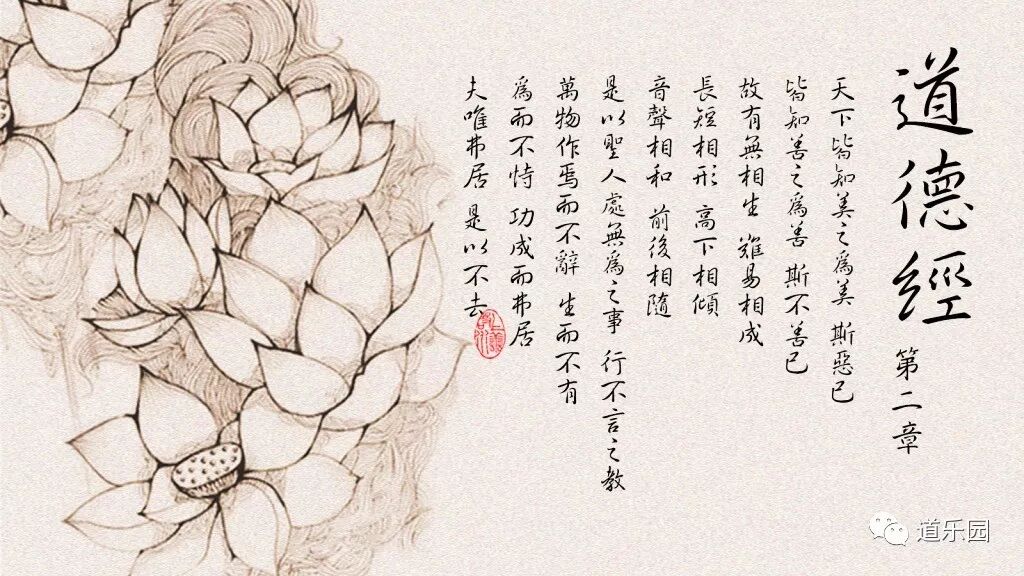 道德經 第二章
天下皆知美之為美 斯惡已
皆知善之為善 斯不善已
故有無相生 難易相成
長短相形 高下相傾
音聲相和 前後相隨
是以聖人處無為之事 行不言之教
萬物作焉而不辭 生而不有
為而不恃 功成而弗居
夫唯弗居 是以不去
道乐园